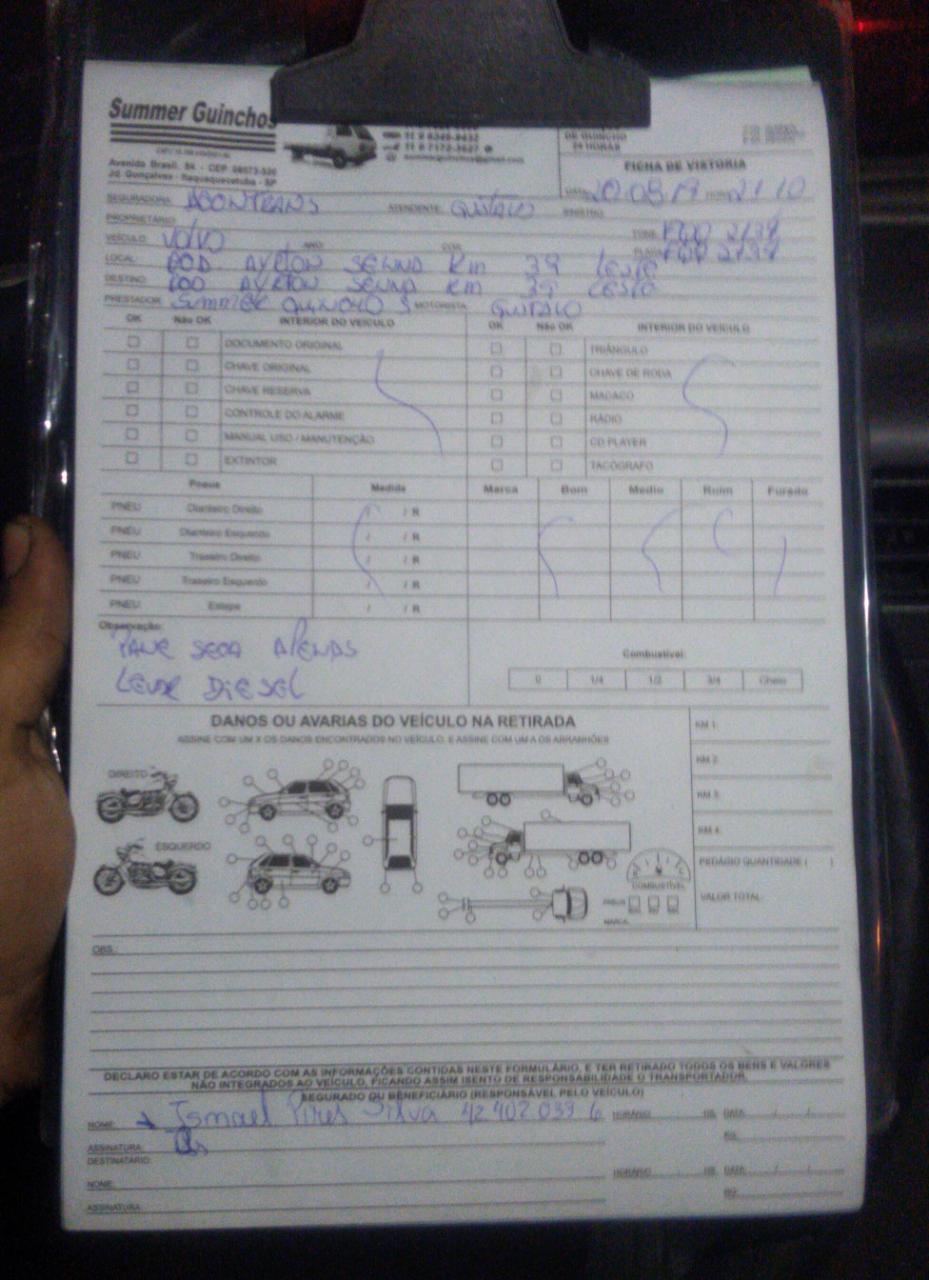 Summer Guinchos
Avenida Brasil, 84 - CEP 08573-320
Jd. Gonçalves - Itaquaquecetuba - SP
summerguinchos@gmail.com
DE GUINCHO
24 HORAS
FICHA DE VISTORIA
DATA: 20.08.19 HORA: 21:10
SEGURADORA: ACONTRANS ATENDENTE: GUSTAVO SINISTRO:
PROPRIETÁRIO:
VEÍCULO: VOLVO ANO: COR: PLACA:
LOCAL: ROD. AYRTON SENNA Km 39 LESTE
DESTINO: ROD AYRTON SENNA Km 39 LESTE
PRESTADOR: SUMMER GUINCHOS MOTORISTA: GUSTAVO
OK Não OK INTERIOR DO VEÍCULO OK Não OK INTERIOR DO VEÍCULO
DOCUMENTO ORIGINAL TRIÂNGULO
CHAVE ORIGINAL CHAVE DE RODA
CHAVE RESERVA MACACO
CONTROLE DO ALARME RÁDIO
MANUAL USO / MANUTENÇÃO CD PLAYER
EXTINTOR TACÓGRAFO
Pneus Medida Marca Bom Medio Ruim Furado
PNEU Dianteiro Direito / / R
PNEU Dianteiro Esquerdo / / R
PNEU Traseiro Direito / / R
PNEU Traseiro Esquerdo / / R
PNEU Estepe / / R
Observação:
PANE SECA APENAS
LEVAR DIESEL
Combustível:
0 1/4 1/2 3/4 Cheio
DANOS OU AVARIAS DO VEÍCULO NA RETIRADA
ASSINE COM UM X OS DANOS ENCONTRADOS NO VEÍCULO, E ASSINE COM UM A OS ARRANHÕES
DIREITO
ESQUERDO
COMBUSTÍVEL
MARCA:
KM 1:
KM 2:
KM 3:
KM 4:
PEDÁGIO QUANTIDADE ( )
VALOR TOTAL:
OBS.:
DECLARO ESTAR DE ACORDO COM AS INFORMAÇÕES CONTIDAS NESTE FORMULÁRIO, E TER RETIRADO TODOS OS BENS E VALORES
NÃO INTEGRADOS AO VEÍCULO, FICANDO ASSIM ISENTO DE RESPONSABILIDADE O TRANSPORTADOR.
SEGURADO OU BENEFICIÁRIO (RESPONSÁVEL PELO VEÍCULO)
NOME: Ismael Pires Silva 42 402 039 6 HORÁRIO: HS DATA: / /
ASSINATURA: RG:
DESTINATÁRIO:
NOME: HORÁRIO: HS DATA: / /
ASSINATURA: RG: